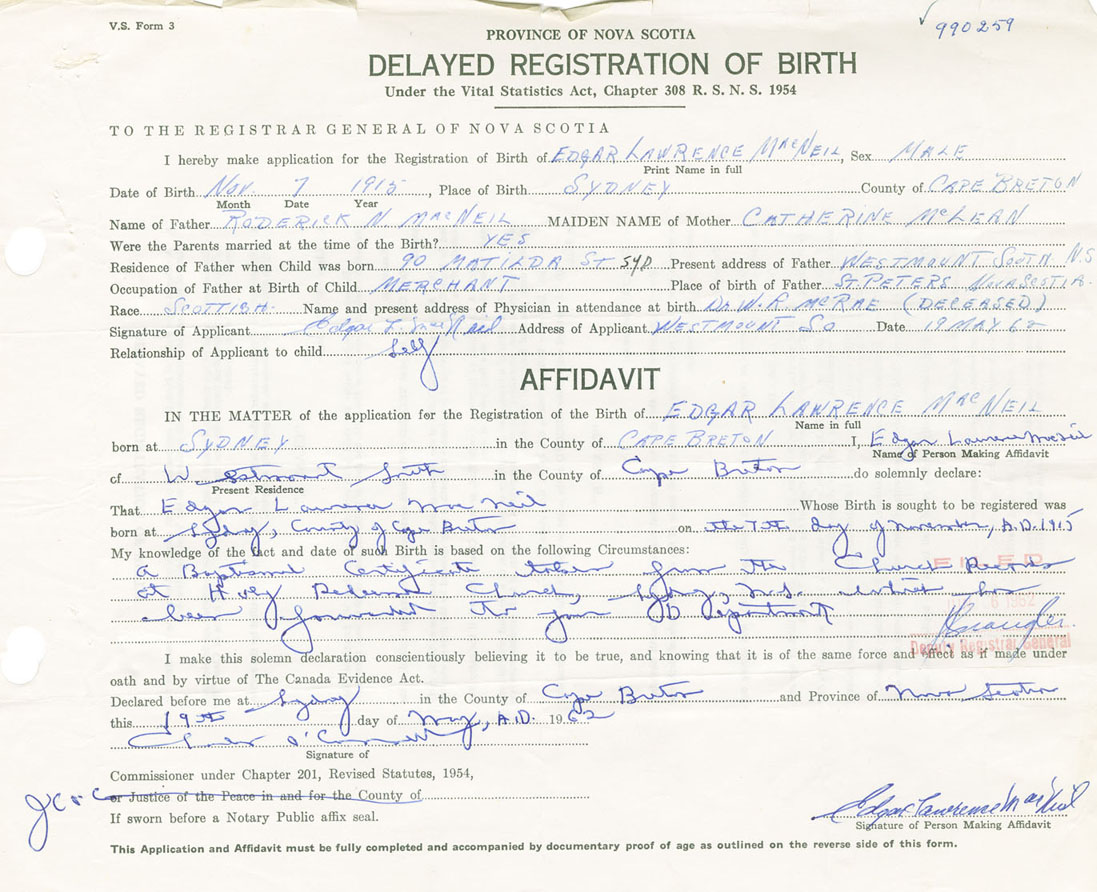 V.S. Form 3
990259
PROVINCE OF NOVA SCOTIA
DELAYED REGISTRATION OF BIRTH
Under the Vital Statistics Act, Chapter 308 R. S. N. S. 1954
TO THE REGISTRAR GENERAL OF NOVA SCOTIA
I hereby make application for the Registration of Birth of EDGAR LAWRENCE MACNEIL, Sex MALE
Print Name in full
Date of Birth NOV. 7 1915, Place of Birth SYDNEY County of CAPE BRETON
Month Date Year
Name of Father RODERICK N. MACNEIL MAIDEN NAME of Mother CATHERINE MCLEAN
Were the Parents married at the time of the Birth? YES
Residence of Father when Child was born 90 MATILDA ST SYD Present address of Father WESTMOUNT SOUTH N.S
Occupation of Father at Birth of Child MERCHANT Place of birth of Father ST. PETERS NOVA SCOTIA
Race SCOTTISH Name and present address of Physician in attendance at birth DR W. R. MCRAE (DECEASED)
Signature of Applicant Edgar L. MacNeil Address of Applicant WESTMOUNT SO Date 19 MAY 62
Relationship of Applicant to child Self
AFFIDAVIT
IN THE MATTER of the application for the Registration of the Birth of EDGAR LAWRENCE MACNEIL
Name in full
born at SYDNEY in the County of CAPE BRETON I, Edgar Lawrence MacNeil
Name of Person Making Affidavit
of Westmount South in the County of Cape Breton do solemnly declare:
Present Residence
That Edgar Lawrence MacNeil Whose Birth is sought to be registered was
born at Sydney, County of Cape Breton on the 7th day of November, A.D. 1915
My knowledge of the fact and date of such Birth is based on the following Circumstances:
A Baptismal Certificate taken from the Church Records
FILED
at Holy Redeemer Church, Sydney, N.S. which has
been forwarded to your Department
6 1962
Deputy Registrar General
I make this solemn declaration conscientiously believing it to be true, and knowing that it is of the same force and effect as if made under
oath and by virtue of The Canada Evidence Act.
Declared before me at Sydney in the County of Cape Breton and Province of Nova Scotia
this 19th day of May, A.D. 1962
O'Connell
Signature of
Commissioner under Chapter 201, Revised Statutes, 1954,
or Justice of the Peace in and for the County of
If sworn before a Notary Public affix seal.
Edgar Lawrence MacNeil
Signature of Person Making Affidavit
This Application and Affidavit must be fully completed and accompanied by documentary proof of age as outlined on the reverse side of this form.